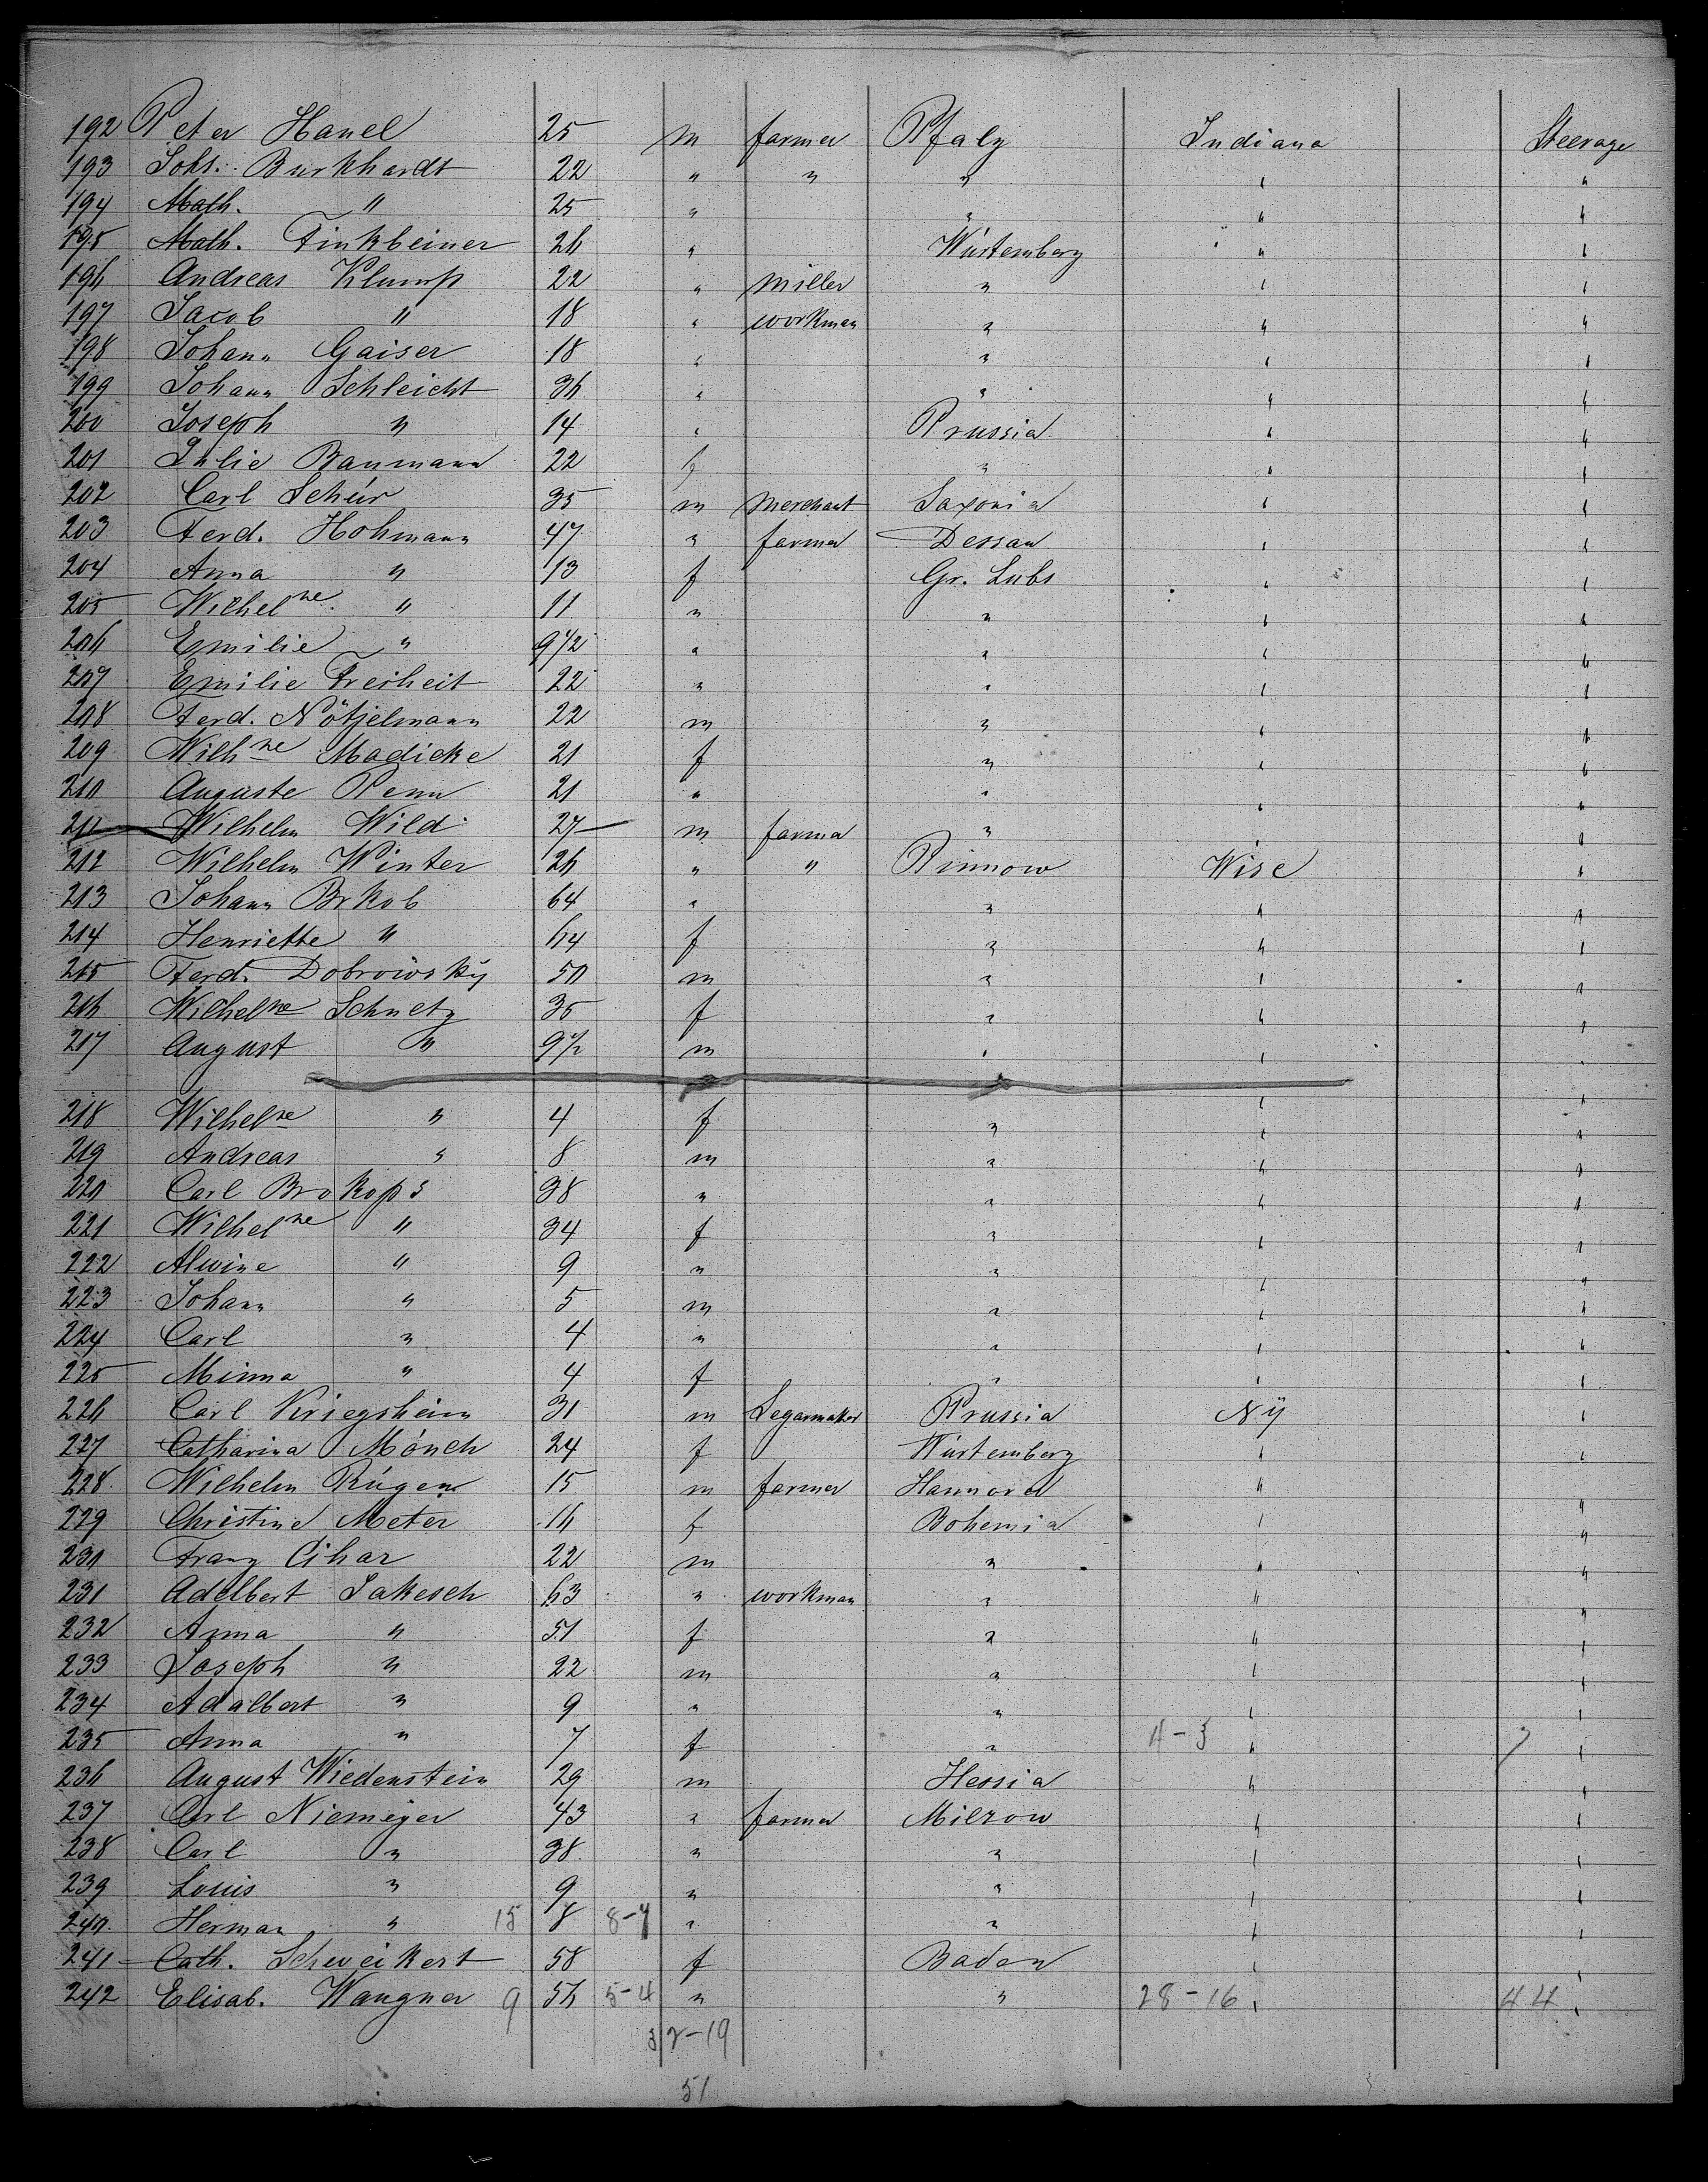 192 Peter Hanel 25 m farmer Pfalz Indiana Steerage
193 Johs. Burkhardt 22 " " " " "
194 Math. " 25 " " " "
195 Math. Finkbeiner 26 " Würtemberg " "
196 Andreas Klumpp 22 " Miller " " "
197 Jacob " 18 " workman " " "
198 Johann Gaiser 18 " " " "
199 Johann Schleicht 36 " " " "
200 Joseph " 14 " Prussia " "
201 Julie Baumann 22 f " " "
202 Carl Schür 35 m Merchant Saxonia " "
203 Ferd. Hohmann 47 " farmer Dessau " "
204 Anna " 13 f Gr. Lubs " "
205 Wilhelne " 11 " " " "
206 Emilie " 9 1/2 " " " "
207 Emilie Freiheit 22 " " " "
208 Ferd. Nötjelmann 22 m " " "
209 Wilhne Madicke 21 f " " "
210 Auguste Penn 21 " " " "
211 Wilhelm Wild 27 m farmer " " "
212 Wilhelm Winter 26 " " Pinnow Wise "
213 Johann Brkob 64 " " " "
214 Henriette " 64 f " " "
215 Ferd. Dobrowsky 50 m " " "
216 Wilhelne Schuetz 35 f " " "
217 August " 9 1/2 m " " "
218 Wilhelne " 4 f " " "
219 Andreas " 8 m " " "
220 Carl Brokops 38 " " " "
221 Wilhelne " 34 f " " "
222 Alwine " 9 " " " "
223 Johann " 5 m " " "
224 Carl " 4 " " " "
225 Minna " 4 f " " "
226 Carl Kriegsheim 31 m Segarmaker Prussia NY "
227 Catharina Mönch 24 f Würtemberg " "
228 Wilhelm Rügen 15 m farmer Hannover " "
229 Christine Meter 16 f Bohemia " "
230 Franz Cihar 22 m " " "
231 Adelbert Jakesch 63 " workman " " "
232 Anna " 51 f " " "
233 Joseph " 22 m " " "
234 Adalbert " 9 " " " "
235 Anna " 7 f " 4-3 " 7 "
236 August Wiedenstein 29 m Hessia " "
237 Carl Niemeyer 43 " farmer Milzow " "
238 Carl " 38 " " " "
239 Louis " 9 " " " "
240 Herman " 15 8 8-7 " " " "
241 Cath. Schweikert 58 f Baden " "
242 Elisab. Wangner 9 56 5-4 " " 28-16 " 44 "
32-19
51